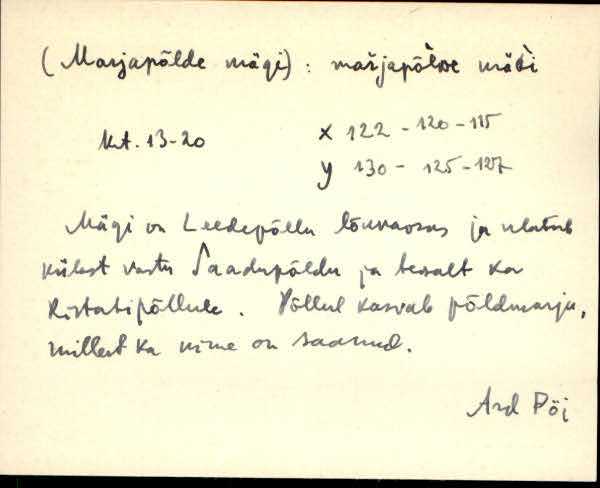 (Marjapõlde mägi) : maŕjapõlve mäǵi
Krt. 13-20
x 122 - 120 - 115
y 130 - 125 - 127
Mägi on Leedepõllu lõunaosas ja ulatub
küljest vastu Saadupõldu ja teisalt ka
Ristatipõllule. Põllul kasvab põldmarju,
millest ka nime on saanud.
Ard Pöi